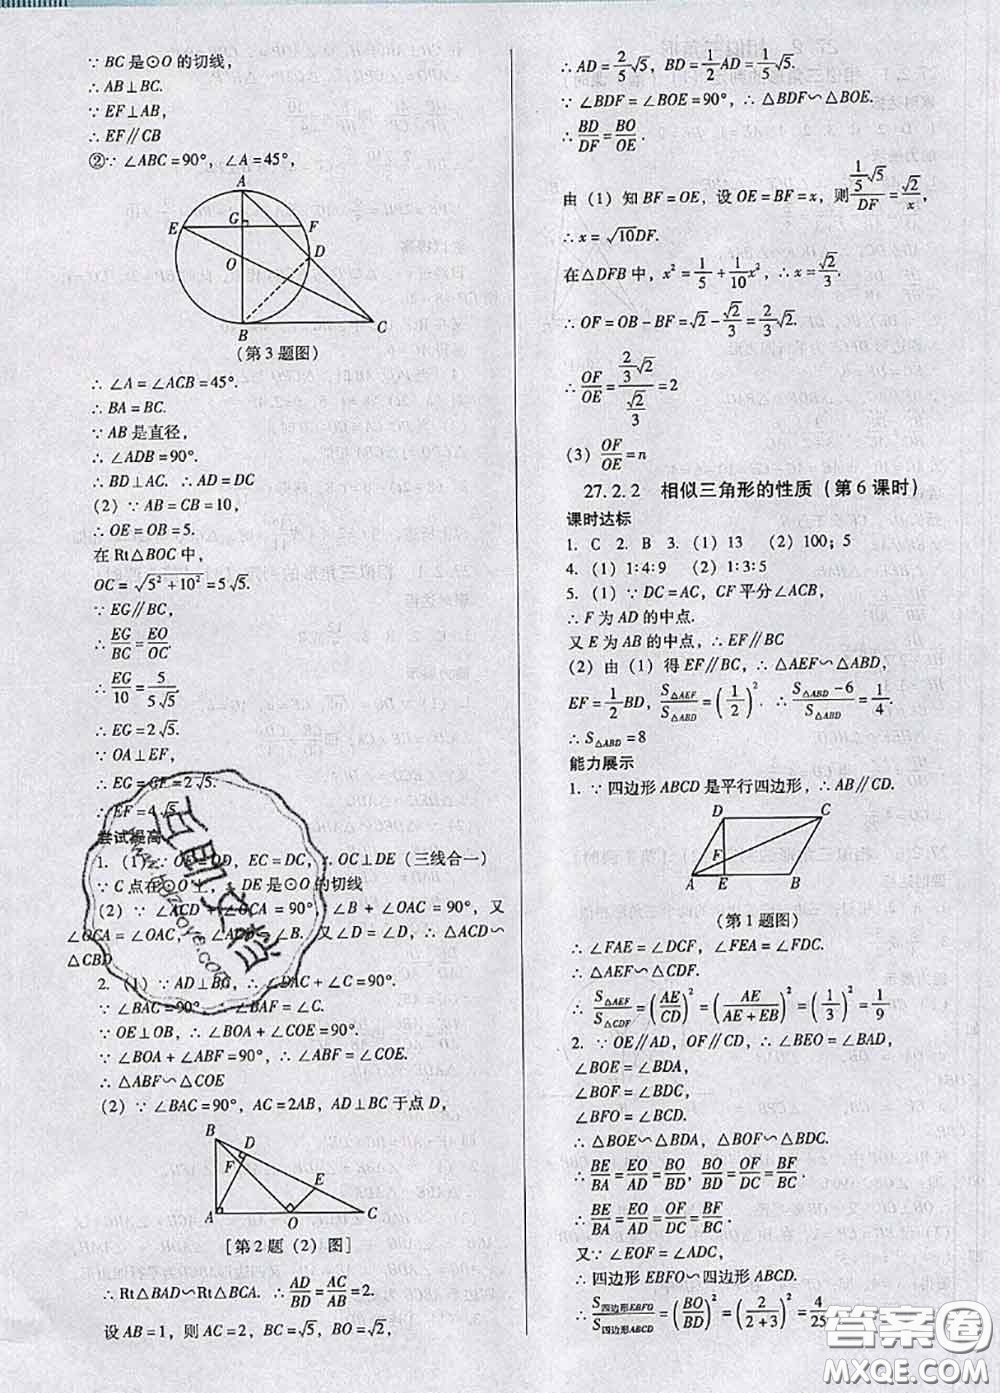 ∵ BC 是⊙O 的切线，
∴ AB⊥BC.
∵ EF⊥AB，
∴ EF∥CB
②∵ ∠ABC=90°，∠A=45°，
A
G
E
F
D
O
B
C
（第 3 题图）
∴ ∠A=∠ACB=45°.
∴ BA=BC.
∵ AB 是直径，
∴ ∠ADB=90°.
∴ BD⊥AC. ∴ AD=DC
（2）∵ AB=CB=10，
∴ OE=OB=5.
在 Rt△BOC 中，
OC=√(5²+10²)=5√5.
∵ EG∥BC，
∴ EG/BC=EO/OC.
∴ EG/10=5/(5√5).
∴ EG=2√5.
∵ OA⊥EF，
∴ EG=GF=2√5.
∴ EF=4√5.
尝试提高
1. （1）∵ OE=OD，EC=DC，∴ OC⊥DE（三线合一）
∵ C 点在⊙O 上，∴ DE 是⊙O 的切线
（2）∵ ∠ACD+∠OCA=90°，∠B+∠OAC=90°，又
∠OCA=∠OAC，∴ ∠ACD=∠B. 又∵ ∠D=∠D，∴ △ACD∽
△CBD
2. （1）∵ AD⊥BC，∴ ∠DAC+∠C=90°.
∵ ∠BAC=90°，∴ ∠BAF=∠C.
∵ OE⊥OB，∴ ∠BOA+∠COE=90°.
∵ ∠BOA+∠ABF=90°，∴ ∠ABF=∠COE.
∴ △ABF∽△COE
（2）∵ ∠BAC=90°，AC=2AB，AD⊥BC 于点 D，
B
D
F
E
A
O
C
［第 2 题（2）图］
∴ Rt△BAD∽Rt△BCA. ∴ AD/BD=AC/AB=2.
设 AB=1，则 AC=2，BC=√5，BO=√2，
∴ AD=2/5√5，BD=1/2AD=1/5√5.
∵ ∠BDF=∠BOE=90°，∴ △BDF∽△BOE.
∴ BD/DF=BO/OE.
由（1）知 BF=OE，设 OE=BF=x，则(1/5√5)/DF=√2/x，
∴ x=√10DF.
在△DFB 中，x²=1/5+1/10x²，∴ x=√2/3.
∴ OF=OB-BF=√2-√2/3=2/3√2.
∴ OF/OE=(2/3√2)/(√2/3)=2
（3）OF/OE=n
27.2.2 相似三角形的性质（第 6 课时）
课时达标
1. C 2. B 3. （1）13 （2）100；5
4. （1）1∶4∶9 （2）1∶3∶5
5. （1）∵ DC=AC，CF 平分∠ACB，
∴ F 为 AD 的中点.
又 E 为 AB 的中点，∴ EF∥BC
（2）由（1）得 EF∥BC，∴ △AEF∽△ABD，
EF=1/2BD，S△AEF/S△ABD=(1/2)². ∴ (S△ABD-6)/S△ABD=1/4.
∴ S△ABD=8
能力展示
1. ∵ 四边形 ABCD 是平行四边形，∴ AB∥CD.
D
C
F
A
E
B
（第 1 题图）
∴ ∠FAE=∠DCF，∠FEA=∠FDC.
∴ △AEF∽△CDF.
∴ S△AEF/S△CDF=(AE/CD)²=(AE/(AE+EB))²=(1/3)²=1/9
2. ∵ OE∥AD，OF∥CD，∴ ∠BEO=∠BAD，
∠BOE=∠BDA，
∠BOF=∠BDC，
∠BFO=∠BCD.
∴ △BOE∽△BDA，△BOF∽△BDC.
∴ BE/BA=EO/AD=BO/BD，BO/BD=OF/DC=BF/BC.
∴ BE/BA=EO/AD=OF/DC=BF/BC.
又∵ ∠EOF=∠ADC，
∴ 四边形 EBFO∽四边形 ABCD.
∴ S四边形EBFO/S四边形ABCD=(BO/BD)²=(2/(2+3))²=4/25
答案圈
MXQE.COM